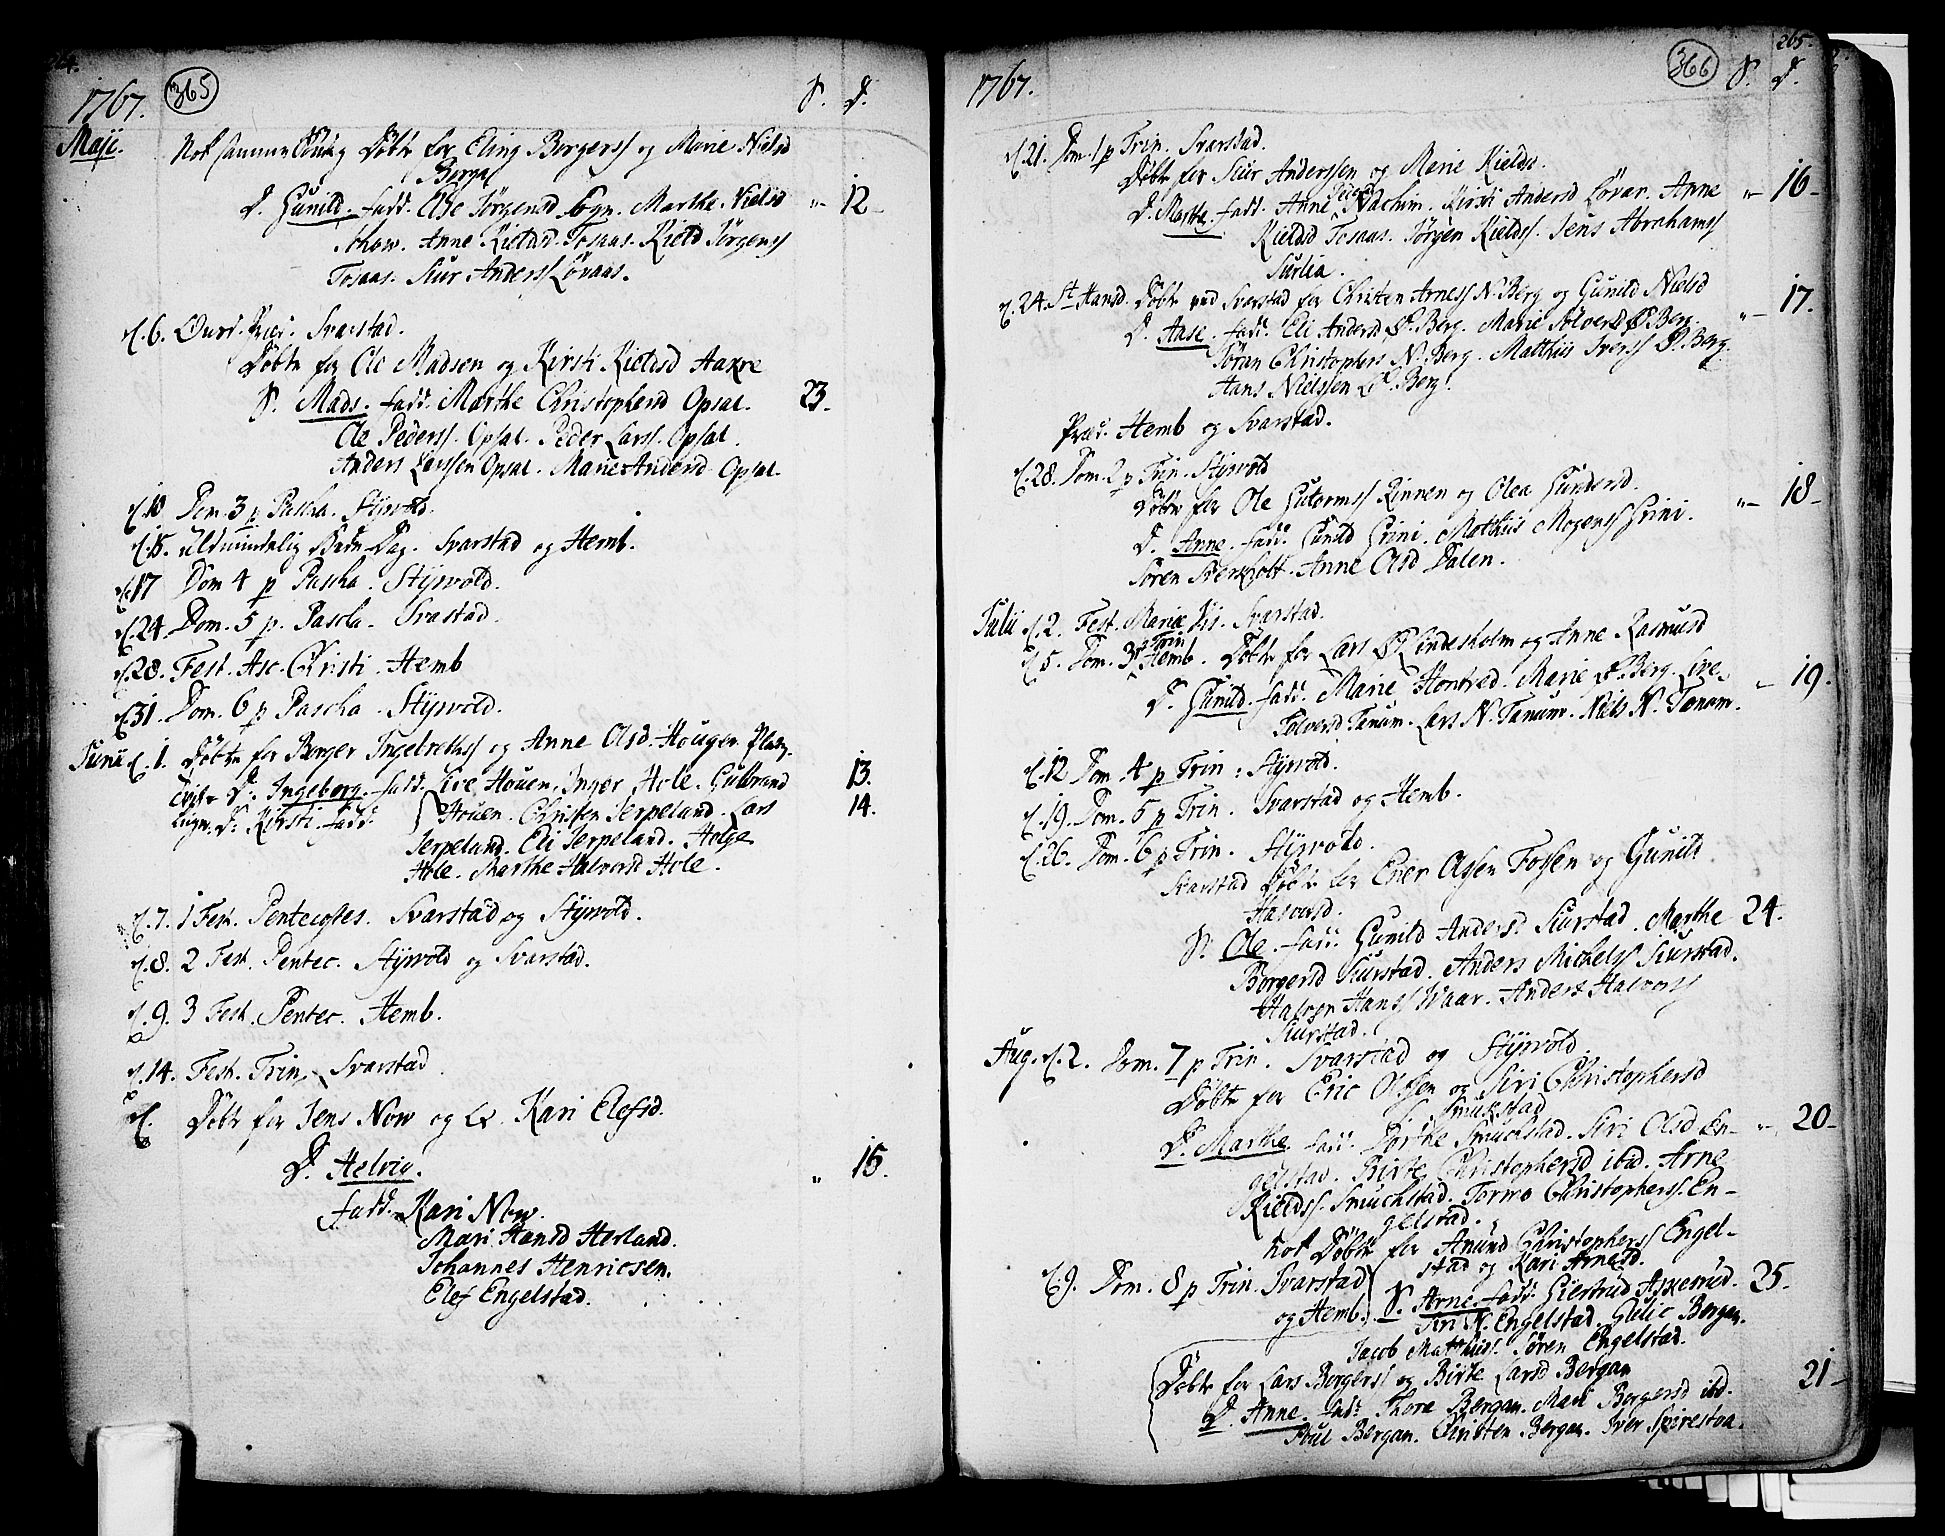 264.
1767. 365 S. D.
Maji. Nok samme Søndag Døbt for Eling Borgerss og Marie Nielsd
Berga
D. Gunild. fadd. Else Jørgensd Sogn. Marthe Nielsd " 12 -
Show. Anne Kieldsd. Tosaas. Kield Jørgenss
Tosaas. Siur Anderss Løvaas.
d. 6. Ovrd. Præd. Svarstad.
Døbt for Ole Madsen og Kirsti Kieldsd Aakre
S. Mads. fadd. Marthe Christophersd Opsal. 23.
Ole Pederss. Opsal. Peder Larss. Opsal.
Anders Larssen Opsal. Marie Andersd Opsal.
d. 10 Dom. 3 p Pascha. Styrvold.
d. 15. Almindelig Bede Dag. Svarstad og Hemb.
d. 17 Dom 4 p Pascha. Styrvold.
d. 24. Dom. 5 p. Pascha. Svastad.
d. 28. Fest. Asc. Christi. Hemb
d. 31. Dom. 6 p Pascha. Styrvold.
Junii d. 1. Døbt for Borger Ingebrethss og Anne Olsd. Hougen Pladz.
D. Ingeborg. fadd. Live Houen. Inger Hole. Gulbrand 13.
D. Kirsti. fadd. Houen. Christen Jerpelund. Lars 14.
Jerpelund. Eli Jerpeland. Helge
Hole. Marthe Halvorsd Hole.
d. 7. 1 Fest. Pentecostes. Svarstad og Styrvold.
d. 8. 2 Fest. Pentec. Styrvold og Svarstad.
d. 9. 3 Fest. Pentec. Hemb.
d. 14. Fest. Trin. Svarstad.
d. Døbt for Jens Now og Kari Elefsd.
D. Helvig. " 15.
fadd. Kari Now.
Mari Hansd Herland.
Johannes Henricsen.
Elef Engelstad.
265.
1767. 366 S. D.
d. 21. Dom. 1 p Trin. Svarstad.
Døbt for Siur Anderssen og Marie Kieldsd.
D. Marthe. fadd. Anne Vachum. Kirsti Andersd Løvar. Anne " 16 -
Kieldsd Tosaas. Jørgen Kieldss. Jens Abrahamss
Surlia.
d. 24. St Hansd. Døbt ved Svarstad for Christen Arness N. Berg og Gunild Nielsd
D. Aase. fadd. Eli Andersd Ø. Berg. Marie Solversd Ø Berg. " 17.
Søren Christophers N. Berg. Matthiis Iverss Ø. Berg.
Hans Nielssen Ø. Berg.
Præd. Hemb og Svarstad.
d. 28. Dom. 2 p Trin. Styrvold
Døbt for Ole Gutormss Rinnen og Olea Gundersd.
D. Anne. fadd. Gunild Grini. Matthiis Mogenss Grini. " 18 -
Søren Sverkholt. Anne Olsd Dalen.
Julii d. 2. Fest. Mariæ Vis. Svarstad.
d. 5. Dom. 3 p Trin Hemb. Døbt for Lars Lindesholm og Anne Rasmusd
D. Gunild. fadd. Marie Hontved. Marie Ø. Berg. Live " 19.
Tolversd Tanum. Lars N. Tanum. Niels N. Tanom.
d. 12 Dom. 4 p Trin: Styrvold.
d. 19. Dom. 5 p Trin. Svarstad og Hemb.
d. 26. Dom. 6 p Trin. Styrvold.
Svarstad Døbt for Ener Olssen Fossen og Gunild
Halvorsd.
S. Ole. fadd. Gunild Andersd Siurstad. Marthe 24.
Borgersd Siurstad. Anders Michelss Siurstad.
Halvor Hanss Waar. Anders Halvorss
Siurstad.
Aug. d. 2. Dom. 7 p Trin. Svarstad og Styrvold.
Døbt for Eric Olssen og Siri Christophersd
Smukstad
D. Marthe fadd. Dorthe Smuckstad. Siri Olsd En- " 20 -
gelstad. Birte Christophersd ibid. Arne
Kieldss. Smuchstad. Tormo Christopherss. En-
gelstad.
Nok Døbt for Anund Christopherss Engel-
stad og Kari Arnesd.
d. 9. Dom. 8 p Trin. Svarstad S. Arne. fadd. Giertrud Askerud. 25.
og Hemb. Siri N. Engelstad. Gulic Bergan.
Jacob Matthiiss. Søren Engelstad.
Døbt for Lars Borgerss og Birte Larsd Bergan
D. Anne. fadd. Thore Bergan. Mari Borgersd ibd. 21 -
Poul Bergan. Christen Bergan. Iver Spirestoa.